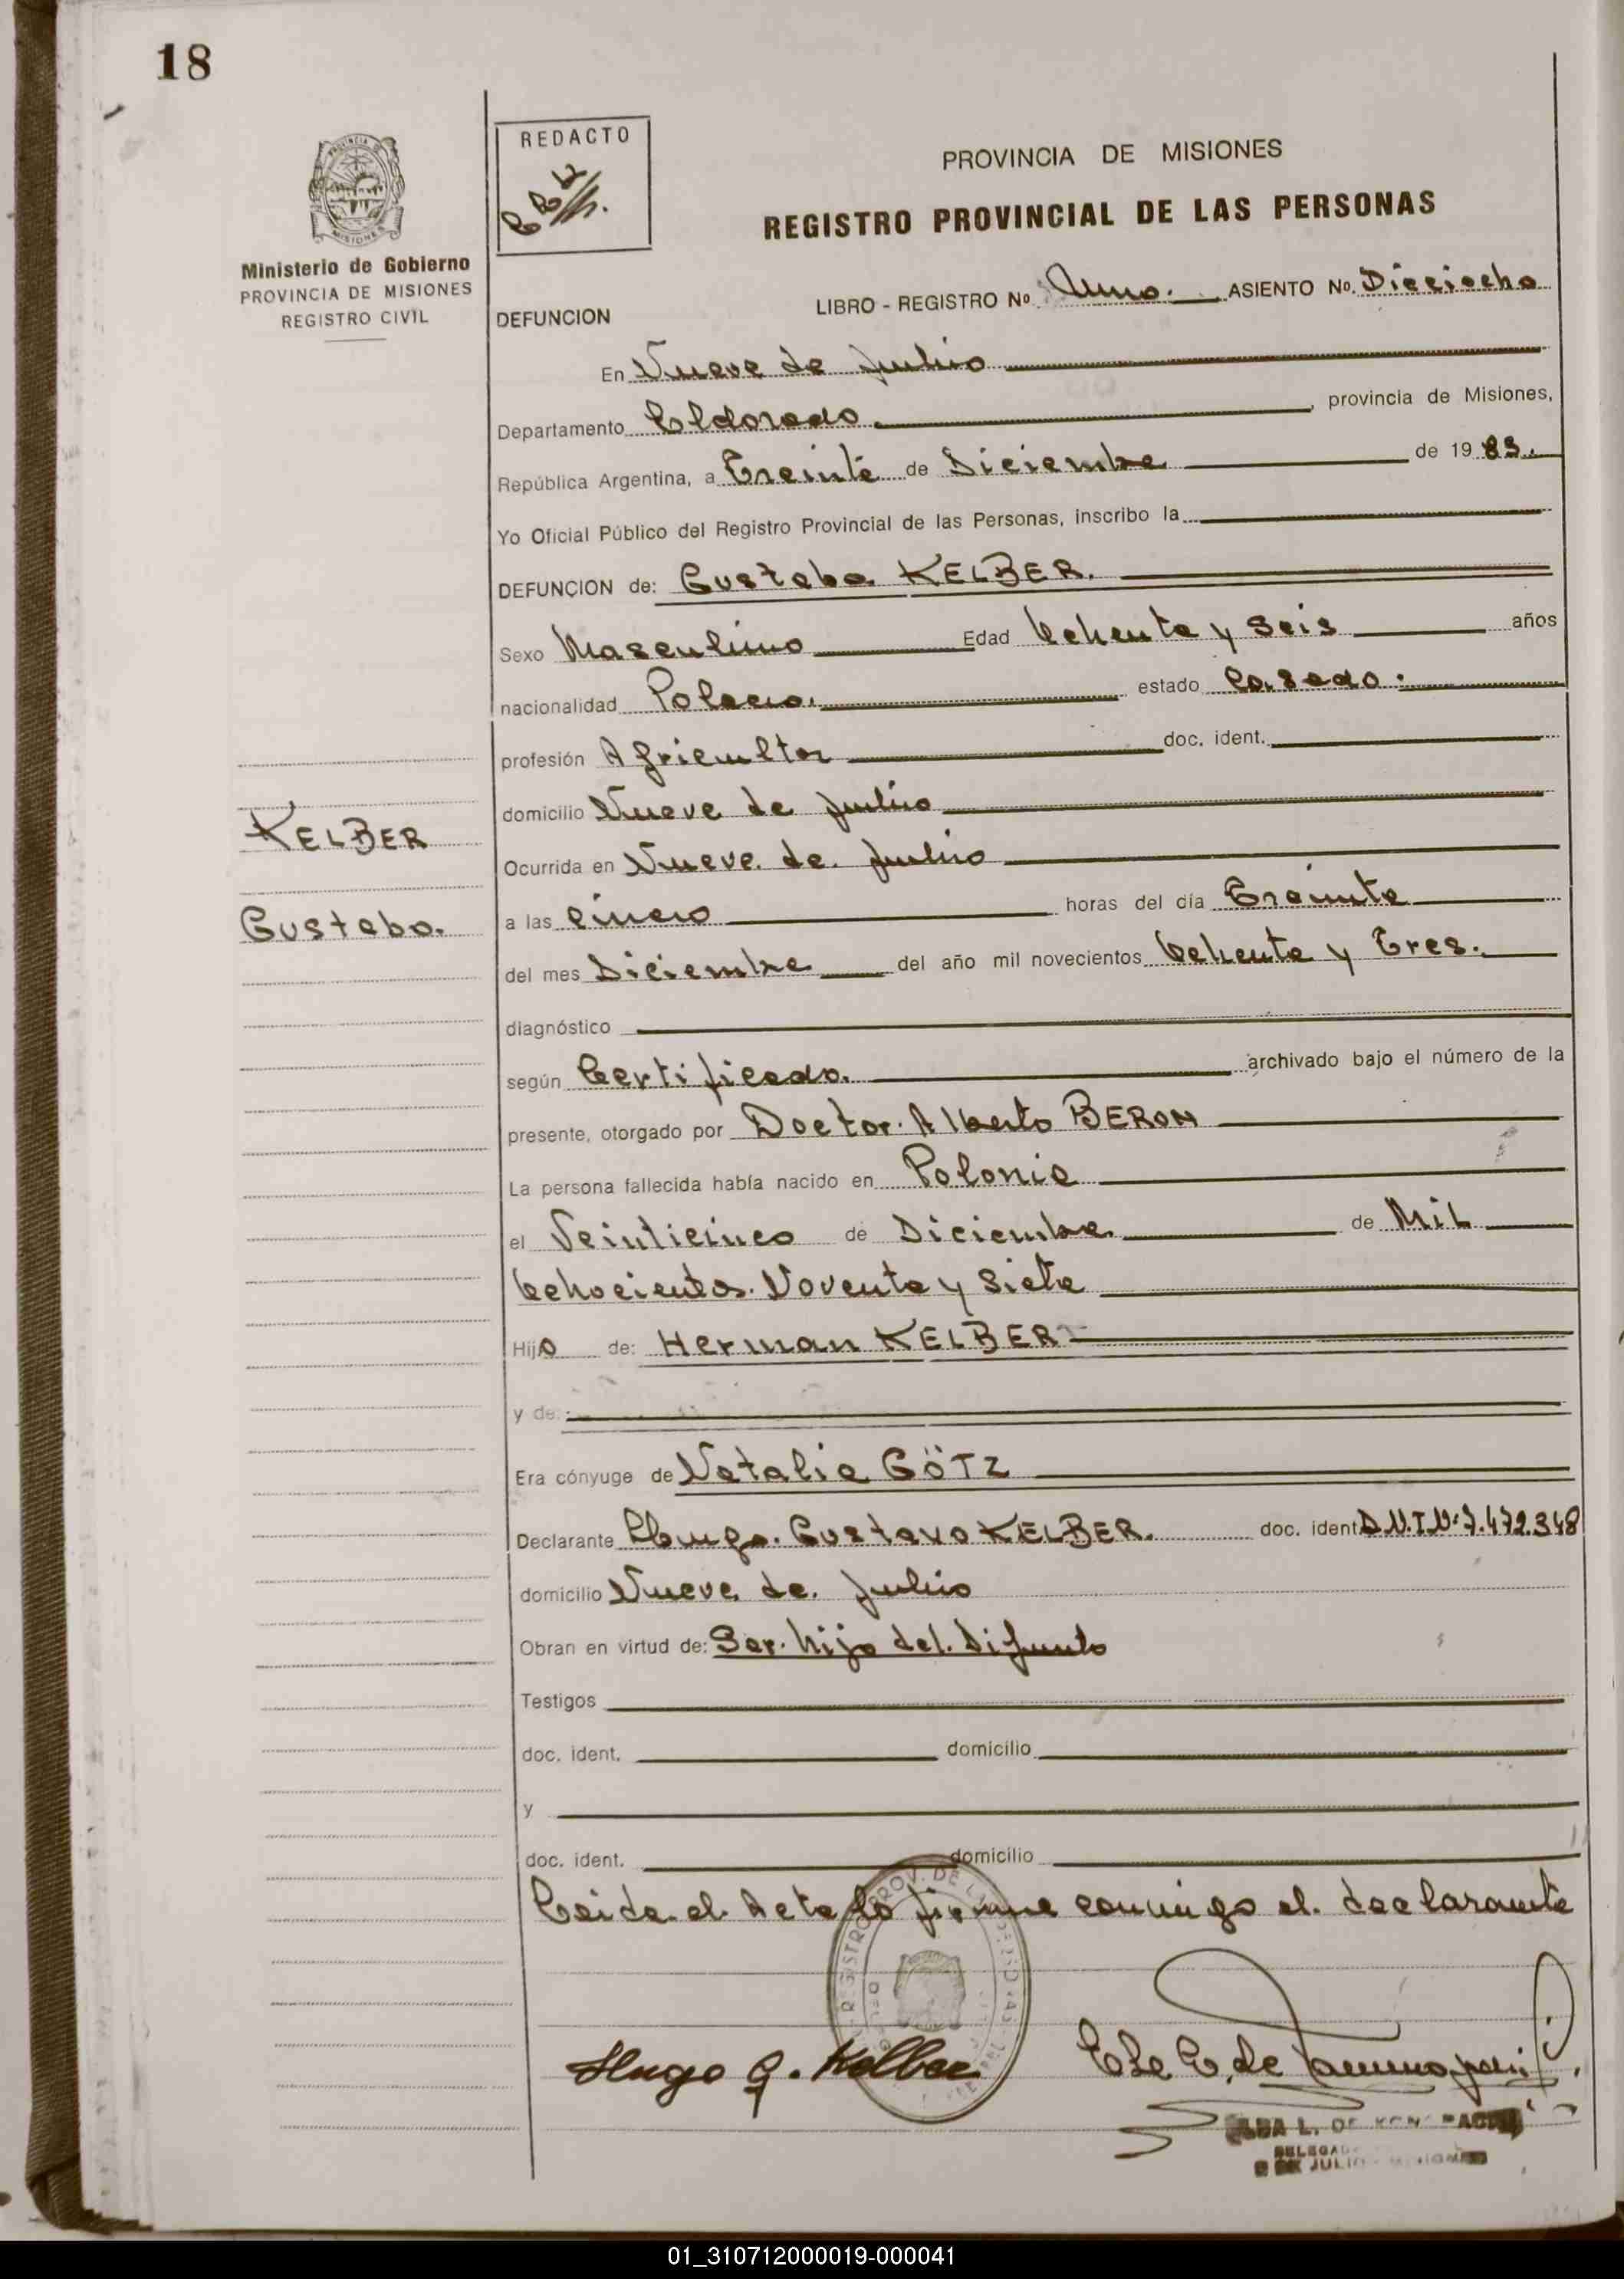 18
REDACTO
PROVINCIA DE MISIONES
REGISTRO PROVINCIAL DE LAS PERSONAS
Ministerio de Gobierno
PROVINCIA DE MISIONES
REGISTRO CIVIL
LIBRO - REGISTRO No. Uno. ASIENTO No. Dieciocho
DEFUNCION
En Nueve de Julio
Departamento Eldorado, provincia de Misiones,
República Argentina, a Treinta de Diciembre de 1983.
Yo Oficial Público del Registro Provincial de las Personas, inscribo la
DEFUNCION de: Gustabo KELBER.
Sexo Masculino Edad Ochenta y Seis años
nacionalidad Polaco. estado Casado.
profesión Agricultor doc. ident.
domicilio Nueve de Julio
KELBER
Ocurrida en Nueve de Julio
Gustabo.
a las Cinco horas del día Treinta
del mes Diciembre del año mil novecientos Ochenta y Tres.
diagnóstico
según Certificado. archivado bajo el número de la
presente, otorgado por Doctor. Alberto BERON
La persona fallecida había nacido en Polonia
el Veinticinco de Diciembre de Mil
Ochocientos. Noventa y Siete
Hijo de: Herman KELBER
y de:
Era cónyuge de Natalia GÖTZ
Declarante Hugo. Gustavo KELBER. doc. ident. D.N.I.Nº 7.472.348
domicilio Nueve de Julio
Obran en virtud de: Ser. hijo del. Difunto
Testigos
doc. ident. domicilio
y
doc. ident. domicilio
Leida el Acta lo firma conmigo el declarante
Hugo G. Kelber
01_310712000019-000041